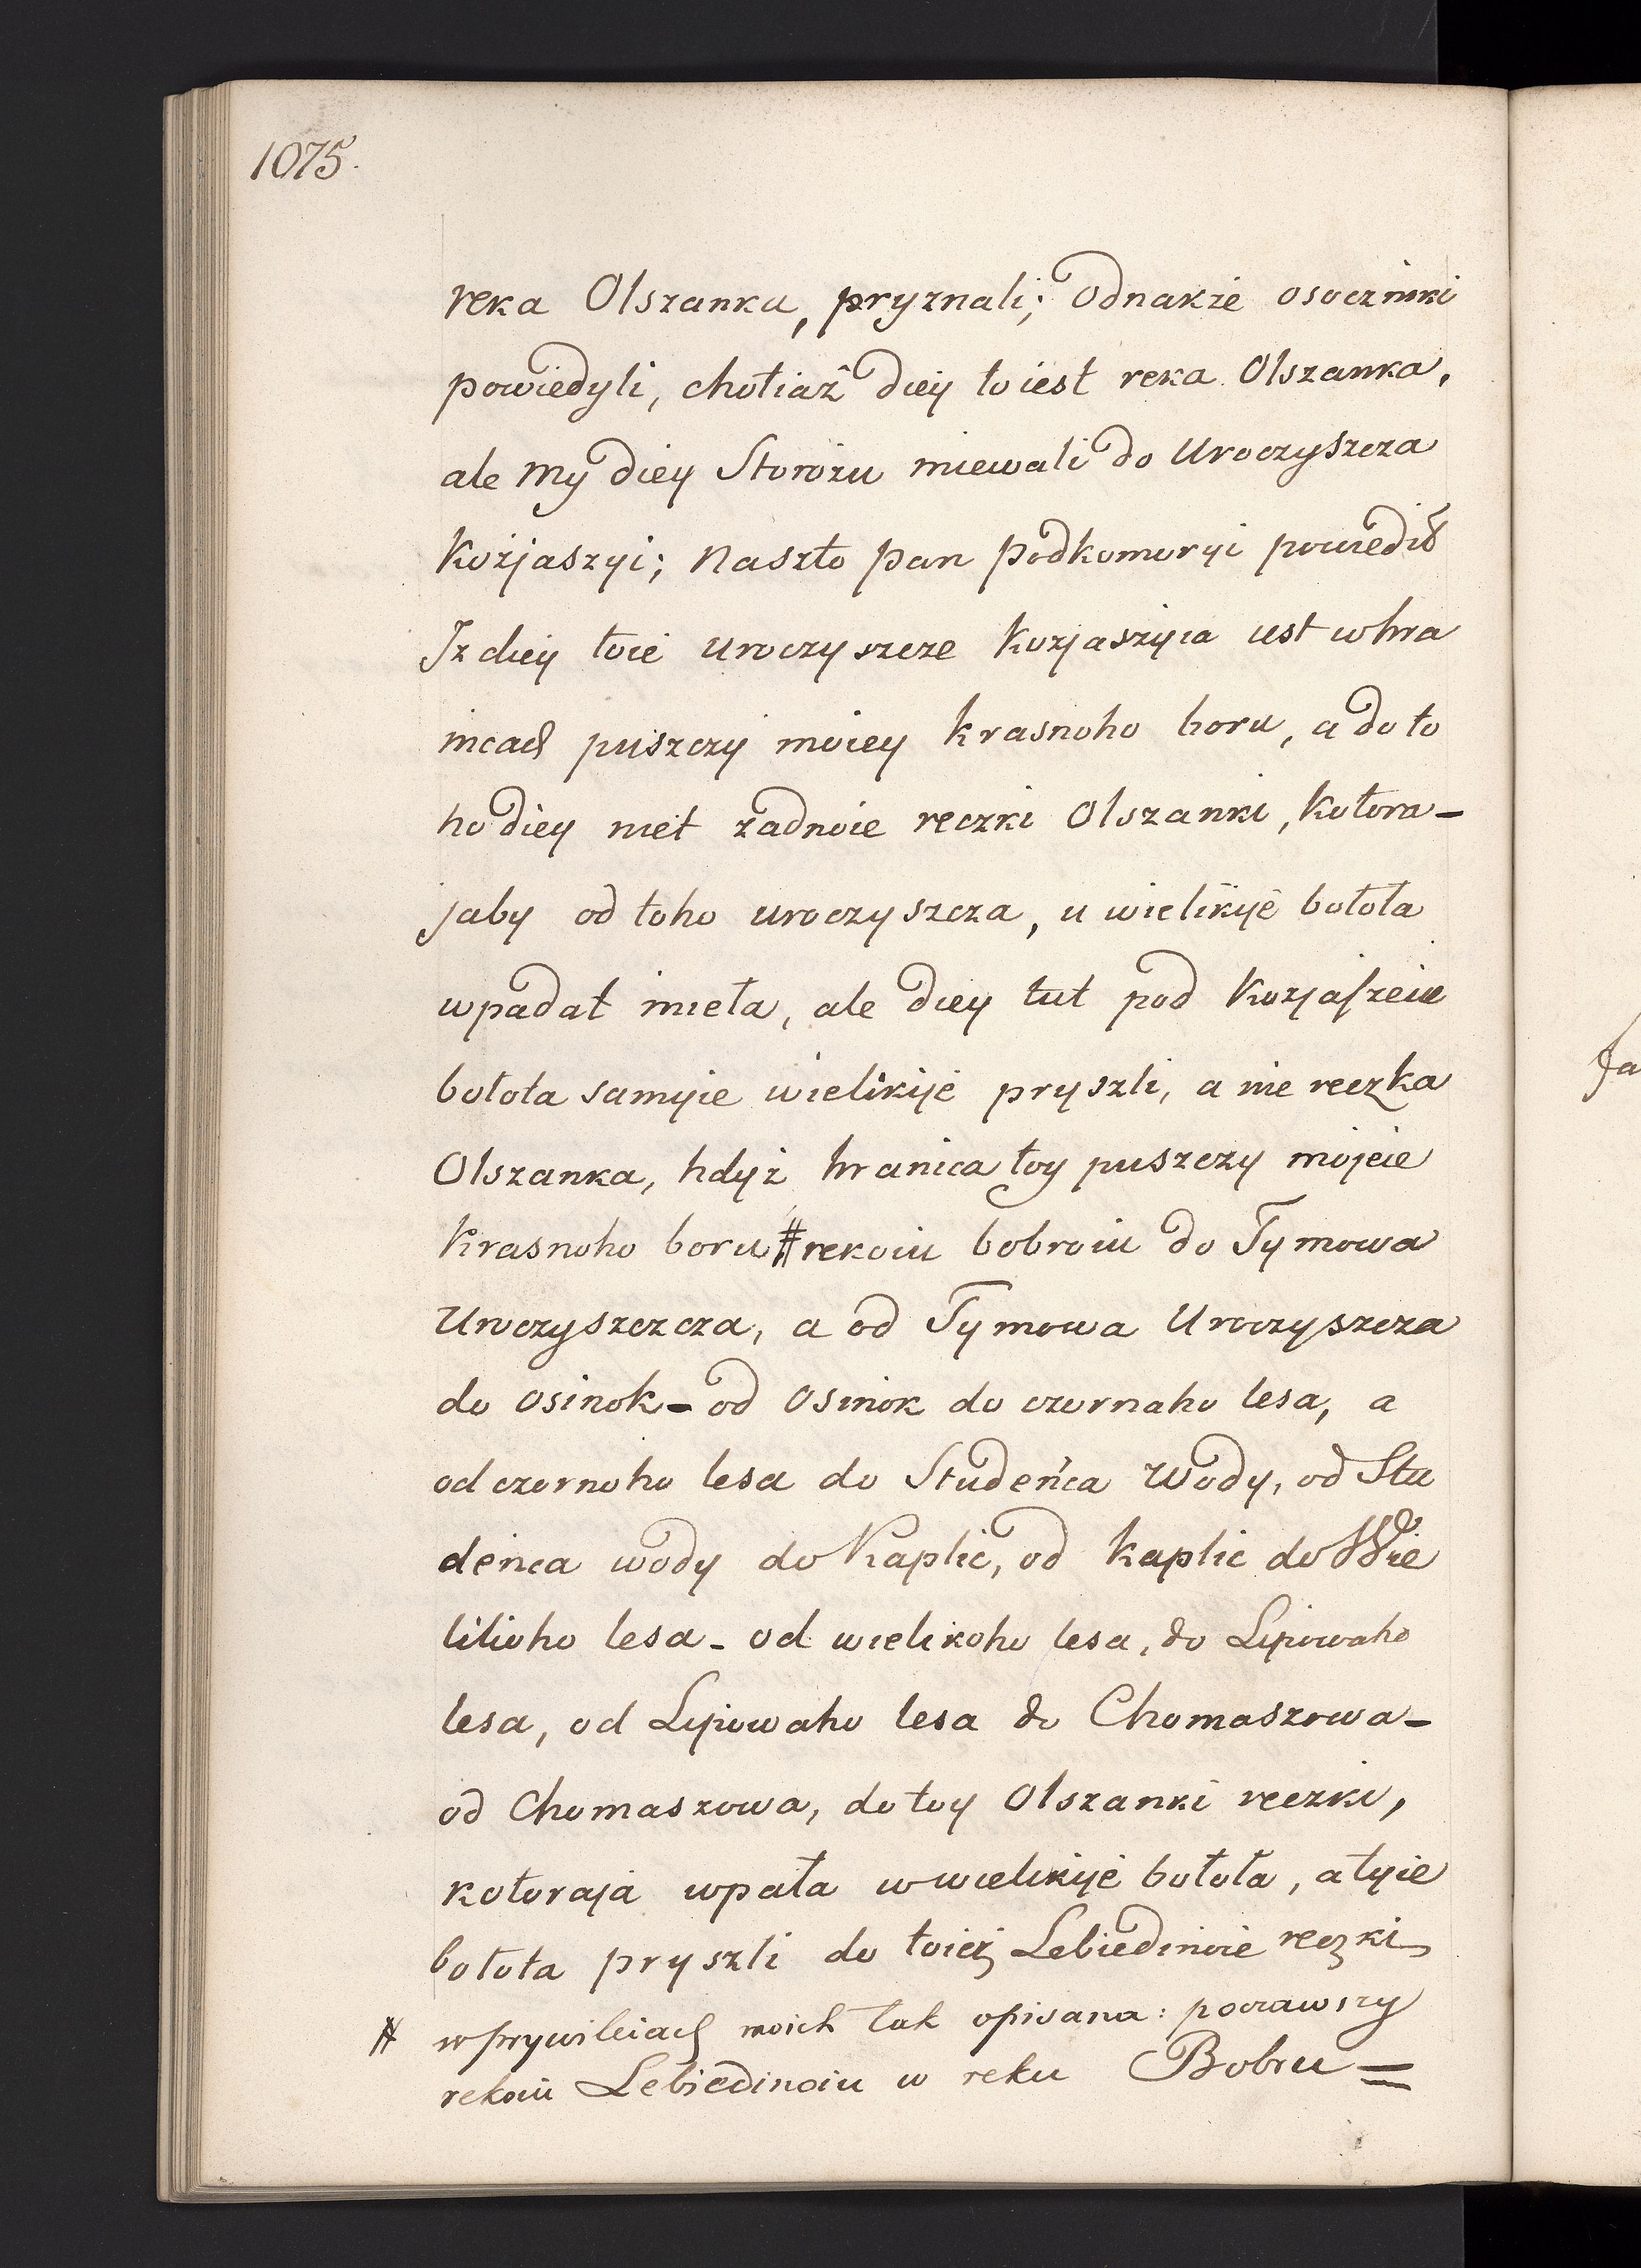 1075.
reka Olszanka, pryznali; odnakże osoczniki
powiedyli, chotiaż diey to iest reka Olszanka,
ale my diey Storożu miewali do Uroczyszcza
Kozjaszyi; Naszto pan podkomoryi powiedił
Iz diey toie uroczyszcze Kozjaszyia iest whra
nicach puszczy moiey krasnoho boru, a do to
ho diey niet żadnoie reczki Olszanki, Kotora-
jaby od toho uroczyszcza, u wielikije bołota
wpadat mieła, ale diey tut pod Kozjaszeiu
bołota samyie wielikije pryszli, a nie reczka
Olszanka, hdyż hranica toy puszczy mojeie
Krasnoho boru # rekoiu bobroiu do Tymowa
Uroczyszczcza, a od Tymowa Uroczyszcza
do osinok - od osinok do czornaho lesa, a
od czornoho lesa do Studeńca Wody, od Stu
deńca wody do Kaplic, od kaplic do Wie
likoho lesa - od wielikoho lesa, do Lipowaho
lesa, od Lipowaho lesa do Chomaszowa -
od Chomaszowa, do toy Olszanki reczki,
kotoraja wpała w wielikije bołota, a tyie
bołota pryszli do toież Lebiedinoie reczki
# w prywileiach moich tak opisana: poczawszy
rekoiu Lebiedinoiu w reku Bobru =
Ja